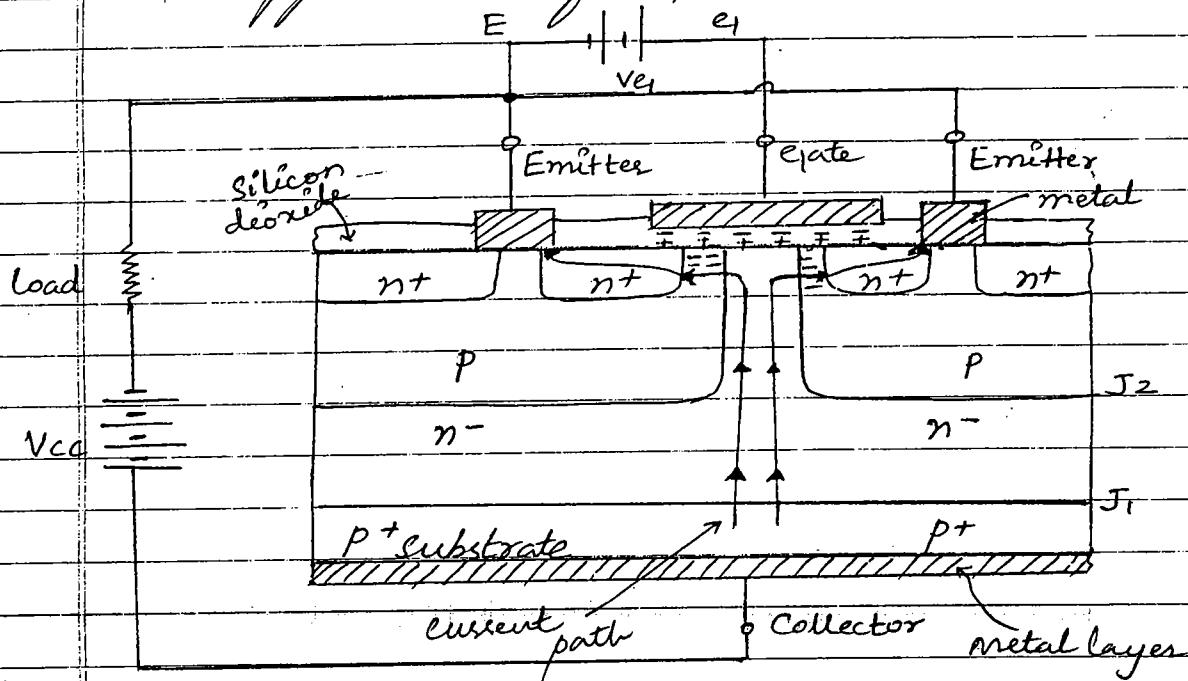 E
G
VG
Emitter
Gate
Emitter
Silicon
dioxide
metal
Load
n+
n+
n+
n+
p
p
J2
Vcc
n-
n-
J1
P+ substrate
p+
current
path
Collector
metal layer